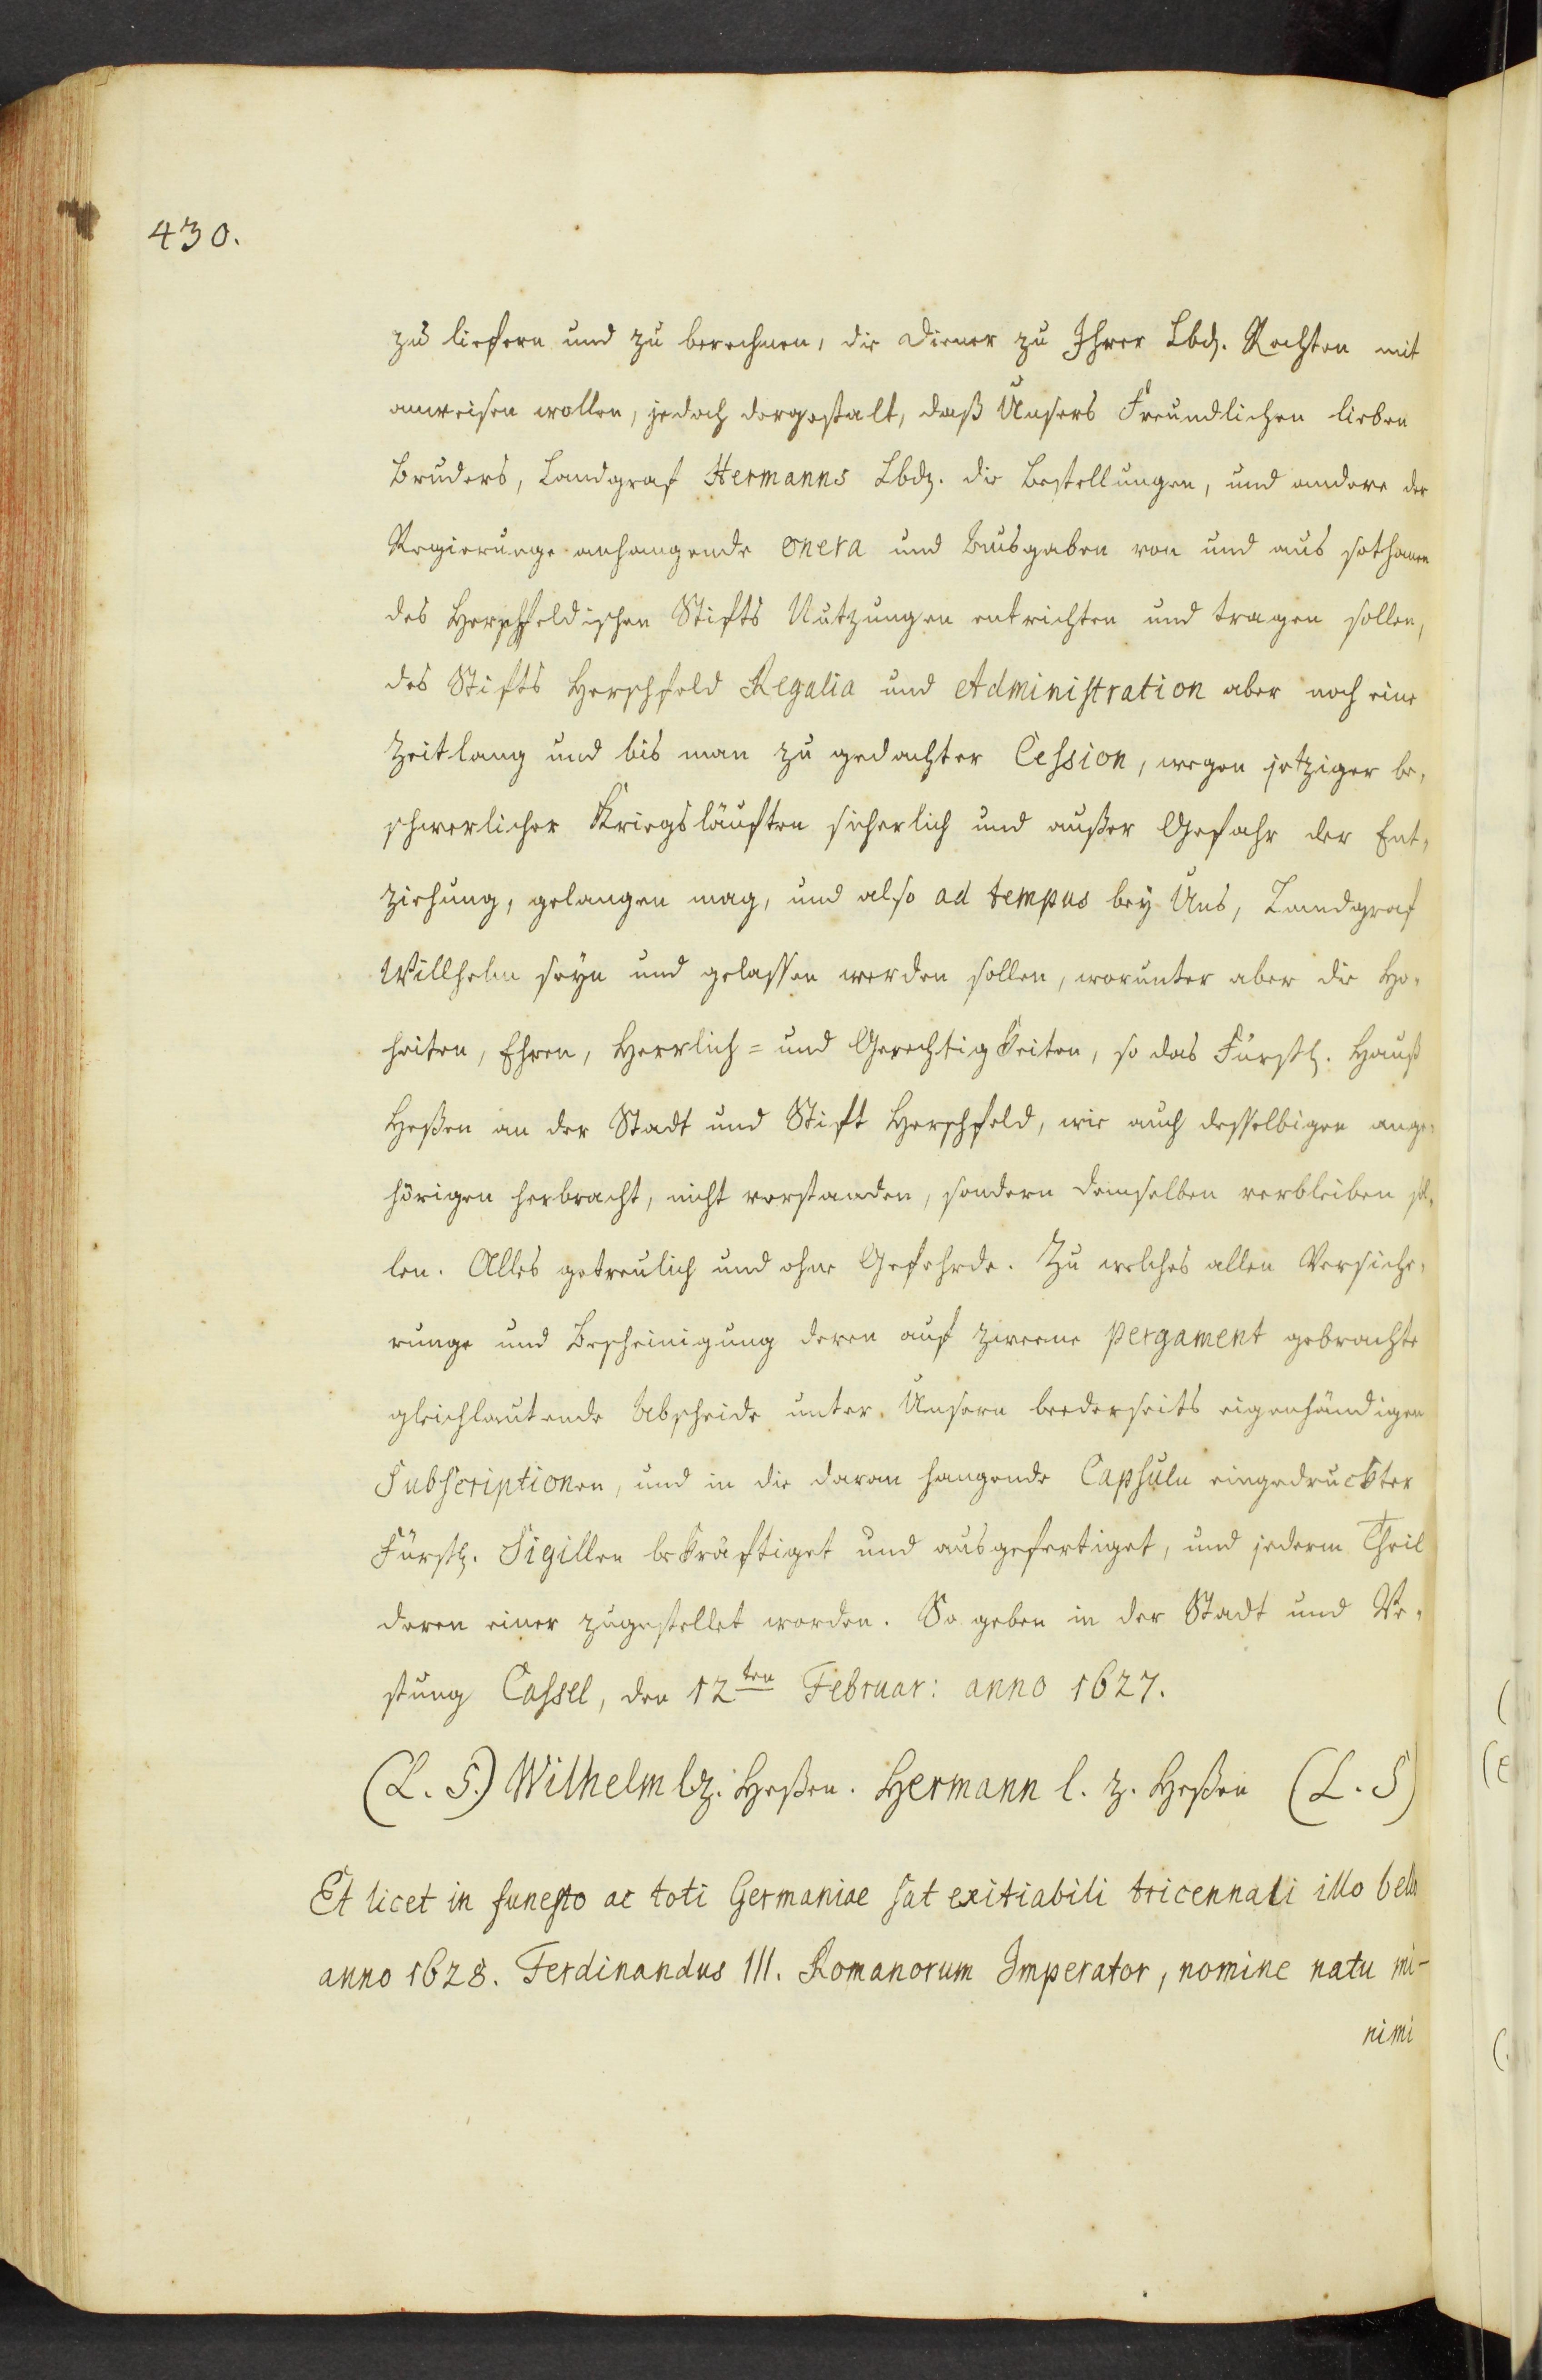 430.
zu liefern und zu berechnen, die Diener zu Ihrer Lbd. Rechten mit
anweisen wollen, jedoch dergestalt, daß Unsers Freundlichen lieben
Bruders, Landgraf Hermanns Lbdz. die Bestellungen, und andere der
Regierunge anhangende onera und Ausgaben von und aus sothanen
des Herschfeldischen Stifts Nutzungen entrichten und tragen sollen,
des Stifts Herschfeld Regalia und Administration aber noch eine
Zeitlang und bis man zu gedachter Cession, wegen jetziger be,
schwerlicher Kriegsläuften sicherlich und außer Gefahr der Ent,
ziehung, gelangen mag, und also ad tempus bey Uns, Landgraf
Willhelm seyn und gelassen werden sollen, worunter aber die Ho,
heiten, Ehren, Herrlich= und Gerechtigkeiten, so das Fürstl. Hauß
Heßen an der Stadt und Stift Herschfeld, wie auch desselbigen ange,
hörigen herbracht, nicht verstanden, sondern demselben verbleiben sol,
len. Alles getreulich und ohne Gefehrde. Zu welches allen Versiche,
runge und Bescheinigung deren auf zweene pergament gebrachte
gleichlautende Abscheide unter Unsern beederseits eigenhändigen
Subscriptionen, und in die daran hangende Capsuln eingedruckter
Fürstl. Sigillen bekräftiget und ausgefertiget, und jederm Theil
deren einer zugestellet worden. So geben in der Stadt und Ve,
stung Cassel, den 12ten Februar: anno 1627.
(L. S.) Wilhelm lz. Heßen. Hermann l. z. Heßen (L. S)
Et licet in funesto ac toti Germaniae sat exitiabili tricennali illo bello
anno 1628. Ferdinandus III. Romanorum Imperator, nomine natu mi-
nimi